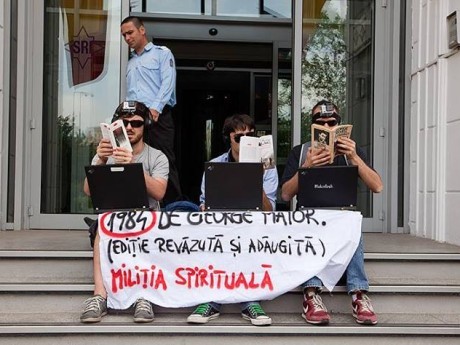 SRI
1984 DE GEORGE MAIOR.
(EDIȚIE REVĂZUTĂ ȘI ADĂUGITĂ)
MILIȚIA SPIRITUALĂ